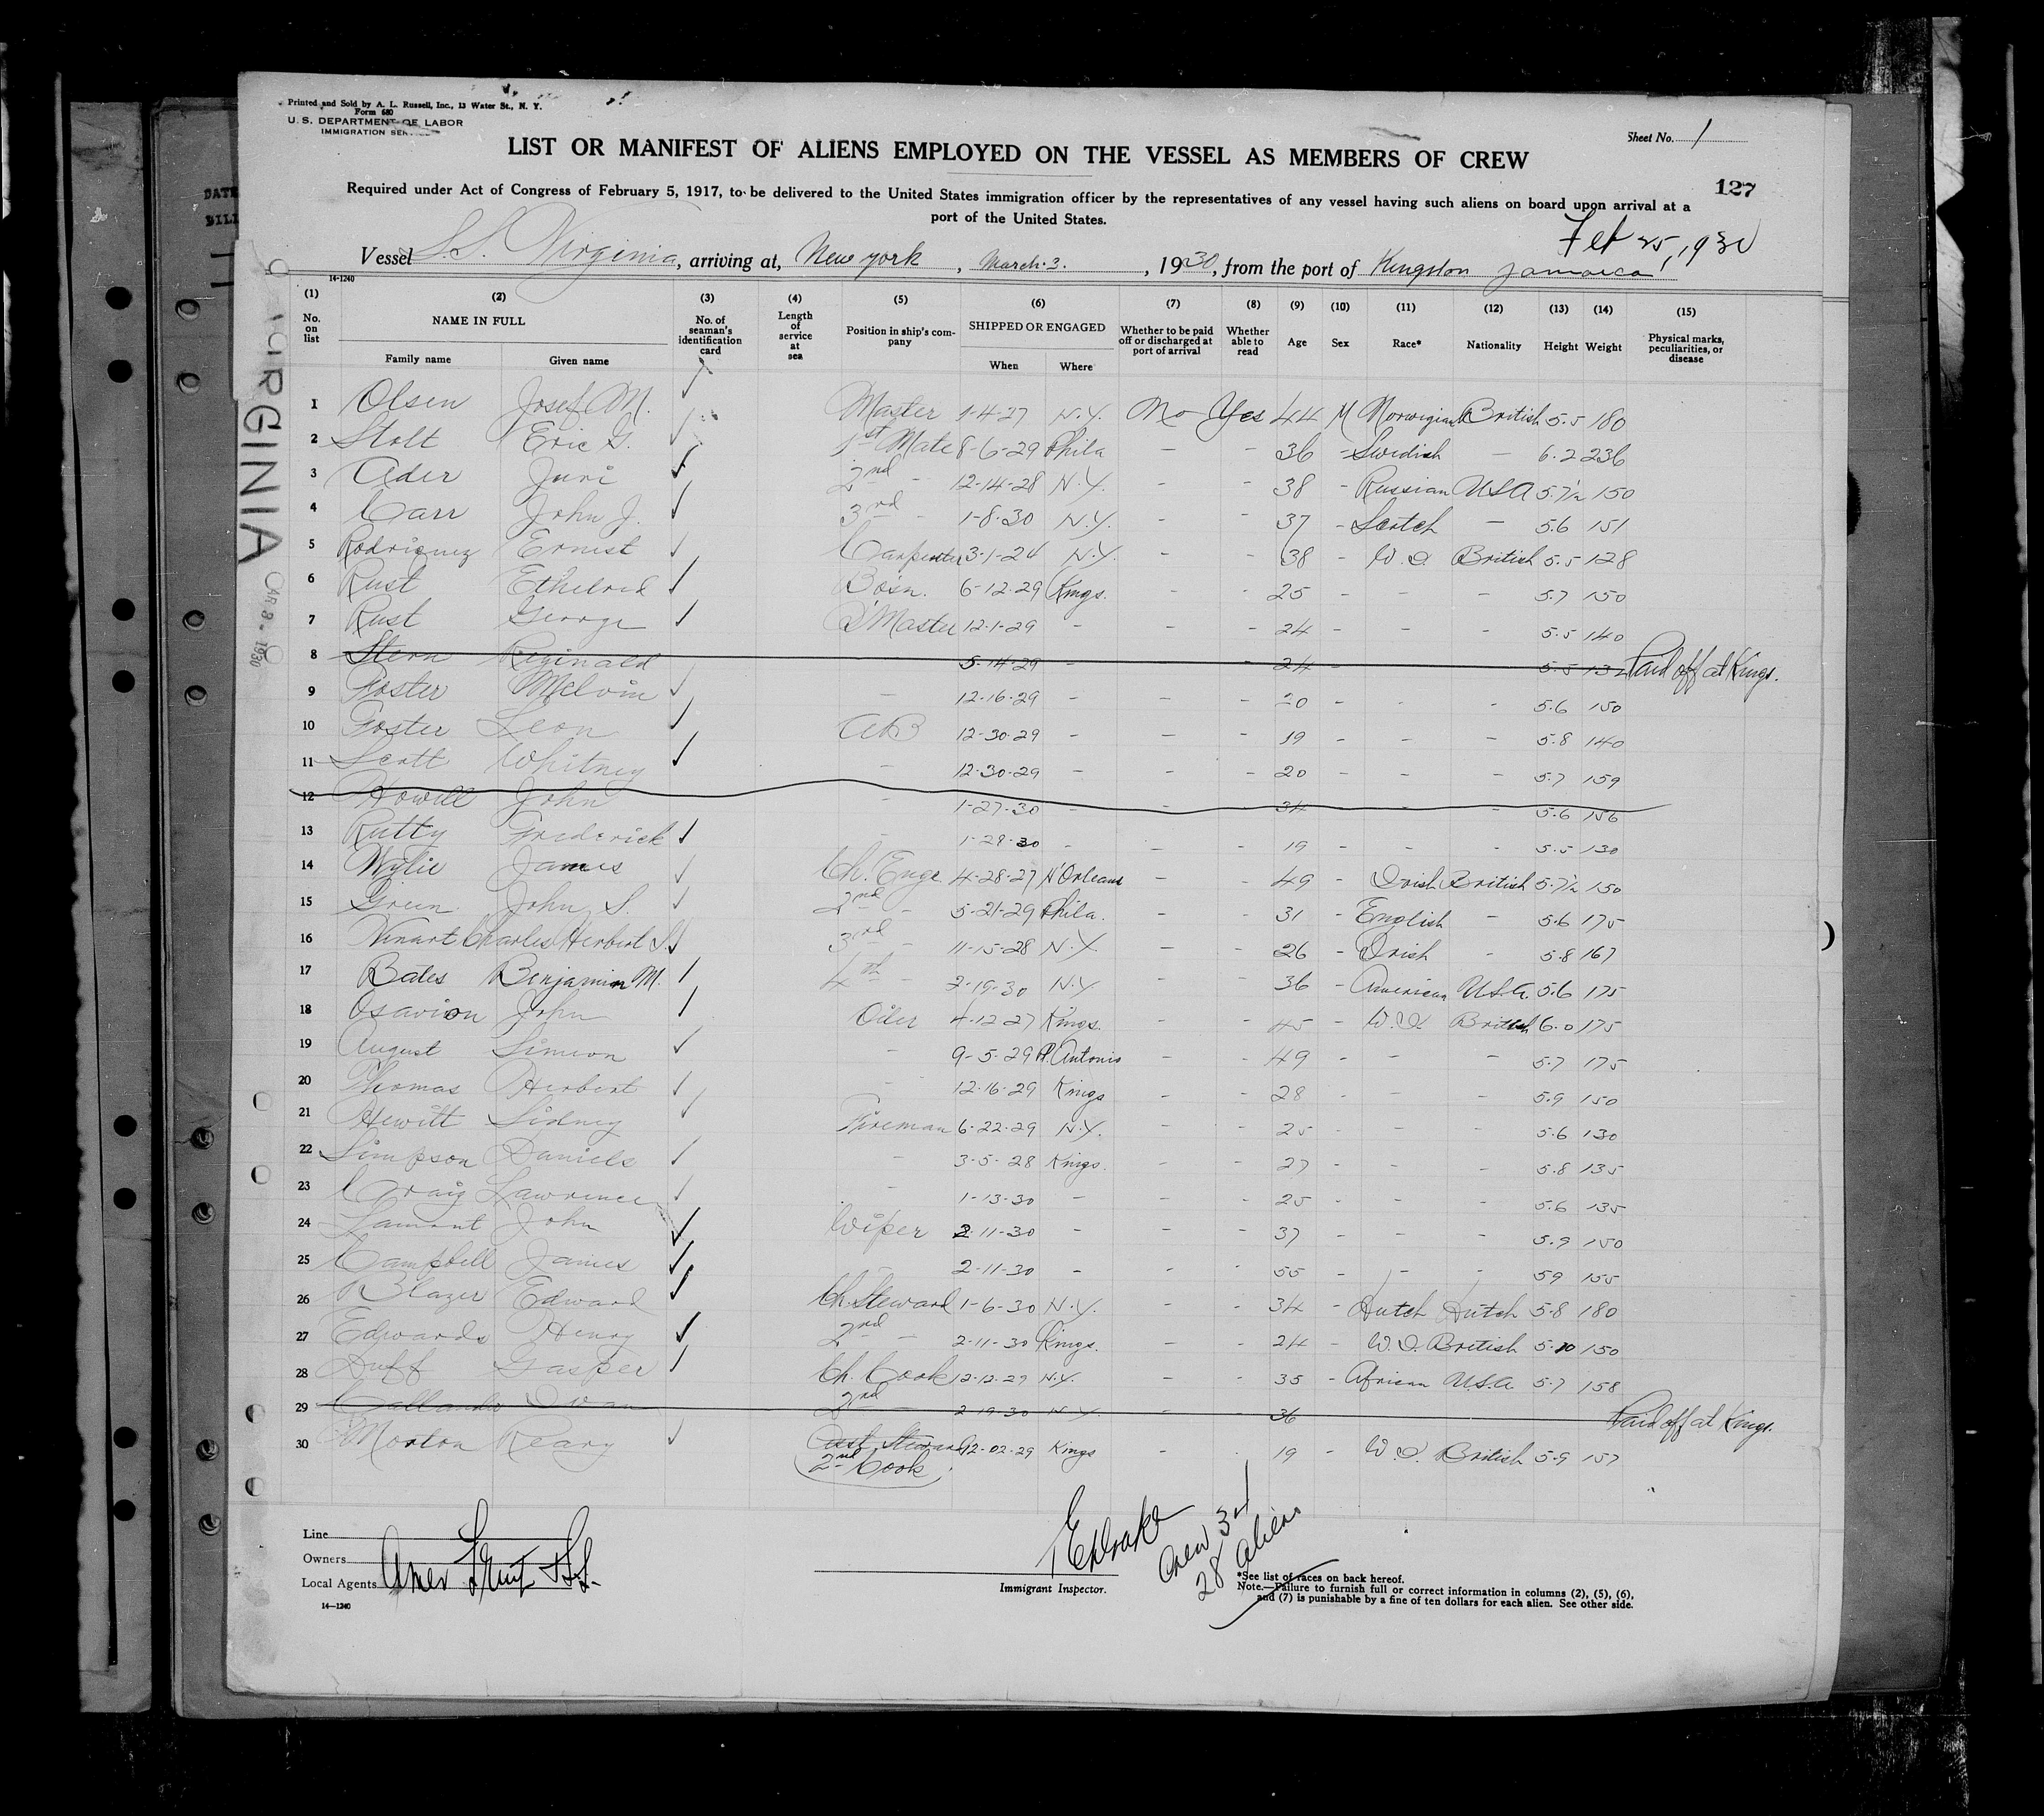 Printed and Sold by A. L. Russell, Inc., 13 Water St., N. Y.
Form 680
U. S. DEPARTMENT OF LABOR
IMMIGRATION SERVICE
Sheet No. 1
LIST OR MANIFEST OF ALIENS EMPLOYED ON THE VESSEL AS MEMBERS OF CREW
127
Required under Act of Congress of February 5, 1917, to be delivered to the United States immigration officer by the representatives of any vessel having such aliens on board upon arrival at a
port of the United States.
Feb 25, 1930
Vessel S.S. Virginia, arriving at, New York, March 3, 1930, from the port of Kingston Jamaica
14-1240
(1) (2) (3) (4) (5) (6) (7) (8) (9) (10) (11) (12) (13) (14) (15)
No. on list NAME IN FULL No. of seaman's identification card Length of service at sea Position in ship's company SHIPPED OR ENGAGED Whether to be paid off or discharged at port of arrival Whether able to read Age Sex Race* Nationality Height Weight Physical marks, peculiarities, or disease
Family name Given name When Where
1 Olsen Josef M. ✓ Master 1-4-27 N.Y. No Yes 44 M Norwegian British 5.5 180
2 Stolt Eric G. ✓ 1st Mate 8-6-29 Phila - - 36 - Swedish - 6.2 236
3 Ader Juri ✓ 2nd - 12-14-28 N.Y. - - 38 - Russian USA 5.7½ 150
4 Carr John J. ✓ 3rd - 1-8-30 N.Y. - - 37 - Scotch - 5.6 151
5 Rodriquez Ernest ✓ Carpenter 3-1-24 N.Y. - - 38 - W.I. British 5.5 128
6 Rust Ethelred ✓ Bosn. 6-12-29 Kings. - - 25 - - - 5.7 150
7 Rust George ✓ Q'Master 12-1-29 - - - 24 - - - 5.5 140
8 Stern Reginald 5-14-29 - - 24 - 5.5 132 Paid off at Kings.
9 Foster Melvin ✓ - 12-16-29 - - - 20 - - - 5.6 150
10 Foster Leon ✓ AB 12-30-29 - - - 19 - - - 5.8 140
11 Scott Whitney ✓ - 12-30-29 - - - 20 - - - 5.7 159
12 Howell John - 1-27-30 - - - 34 - - - 5.6 156
13 Rutty Frederick ✓ - 1-28-30 - - - 19 - - - 5.5 130
14 Wylie James ✓ Ch. Engr 4-28-27 N'Orleans - - 49 - Irish British 5.7½ 150
15 Green John S. ✓ 2nd - 5-21-29 Phila. - - 31 - English - 5.6 175
16 Charles Herbert S. ✓ 3rd - 11-15-28 N.Y. - - 26 - Irish - 5.8 167
17 Bates Benjamin M. ✓ 4th - 2-19-30 N.Y - - 36 - American U.S.A. 5.6 175
18 Osavion John ✓ Oiler 4-12-27 Kings. - - 45 - W.I. British 6.0 175
19 August Simeon ✓ - 9-5-29 P. Antonio - - 49 - - - 5.7 175
20 Thomas Herbert ✓ - 12-16-29 Kings - - 28 - - - 5.9 150
21 Hewitt Sidney ✓ Fireman 6-22-29 N.Y. - - 25 - - - 5.6 130
22 Simpson Daniels ✓ - 3-5-28 Kings. - - 27 - - - 5.8 135
23 Craig Lawrence ✓ - 1-13-30 - - - 25 - - - 5.6 135
24 Lamont John ✓ Wiper 2-11-30 - - - 37 - - - 5.9 150
25 Campbell James ✓ - 2-11-30 - - - 55 - - - 5.9 155
26 Blazer Edward ✓ Ch. Steward 1-6-30 N.Y. - - 34 - Dutch Dutch 5.8 180
27 Edwards Henry ✓ 2nd - 2-11-30 Kings. - - 24 - W.I. British 5.10 150
28 Duff Gasper ✓ Ch. Cook 12-12-29 N.Y. - - 35 - African U.S.A. 5.7 158
29 Ivan 2nd - 2-19-30 N.Y. 36 Paid off at Kings.
30 Morton Reary ✓ Asst Steward 12-02-29 Kings - - 19 - W.I. British 5.9 157
2nd Cook
VIRGINIA
MAR 3 - 1930
Line
Owners
Local Agents Amer Fruit & SS.
14-1240
Immigrant Inspector.
Crew 34
28 aliens
*See list of races on back hereof.
Note.—Failure to furnish full or correct information in columns (2), (5), (6),
and (7) is punishable by a fine of ten dollars for each alien. See other side.
DATE